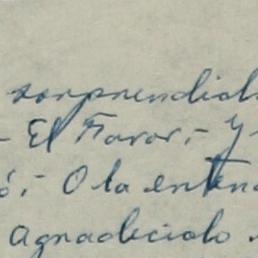 sorprendido
- El Favor.- Y -
ó.- O la enten
agradecido.